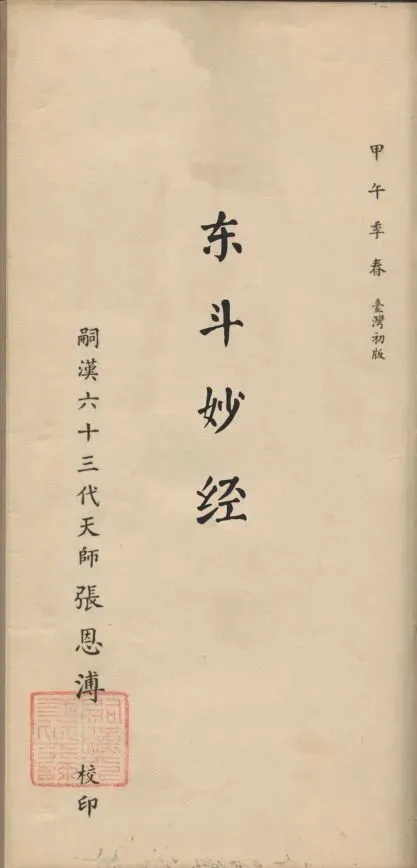 甲午季春 臺灣初版
东斗妙经
嗣漢六十三代天師張恩溥 校印